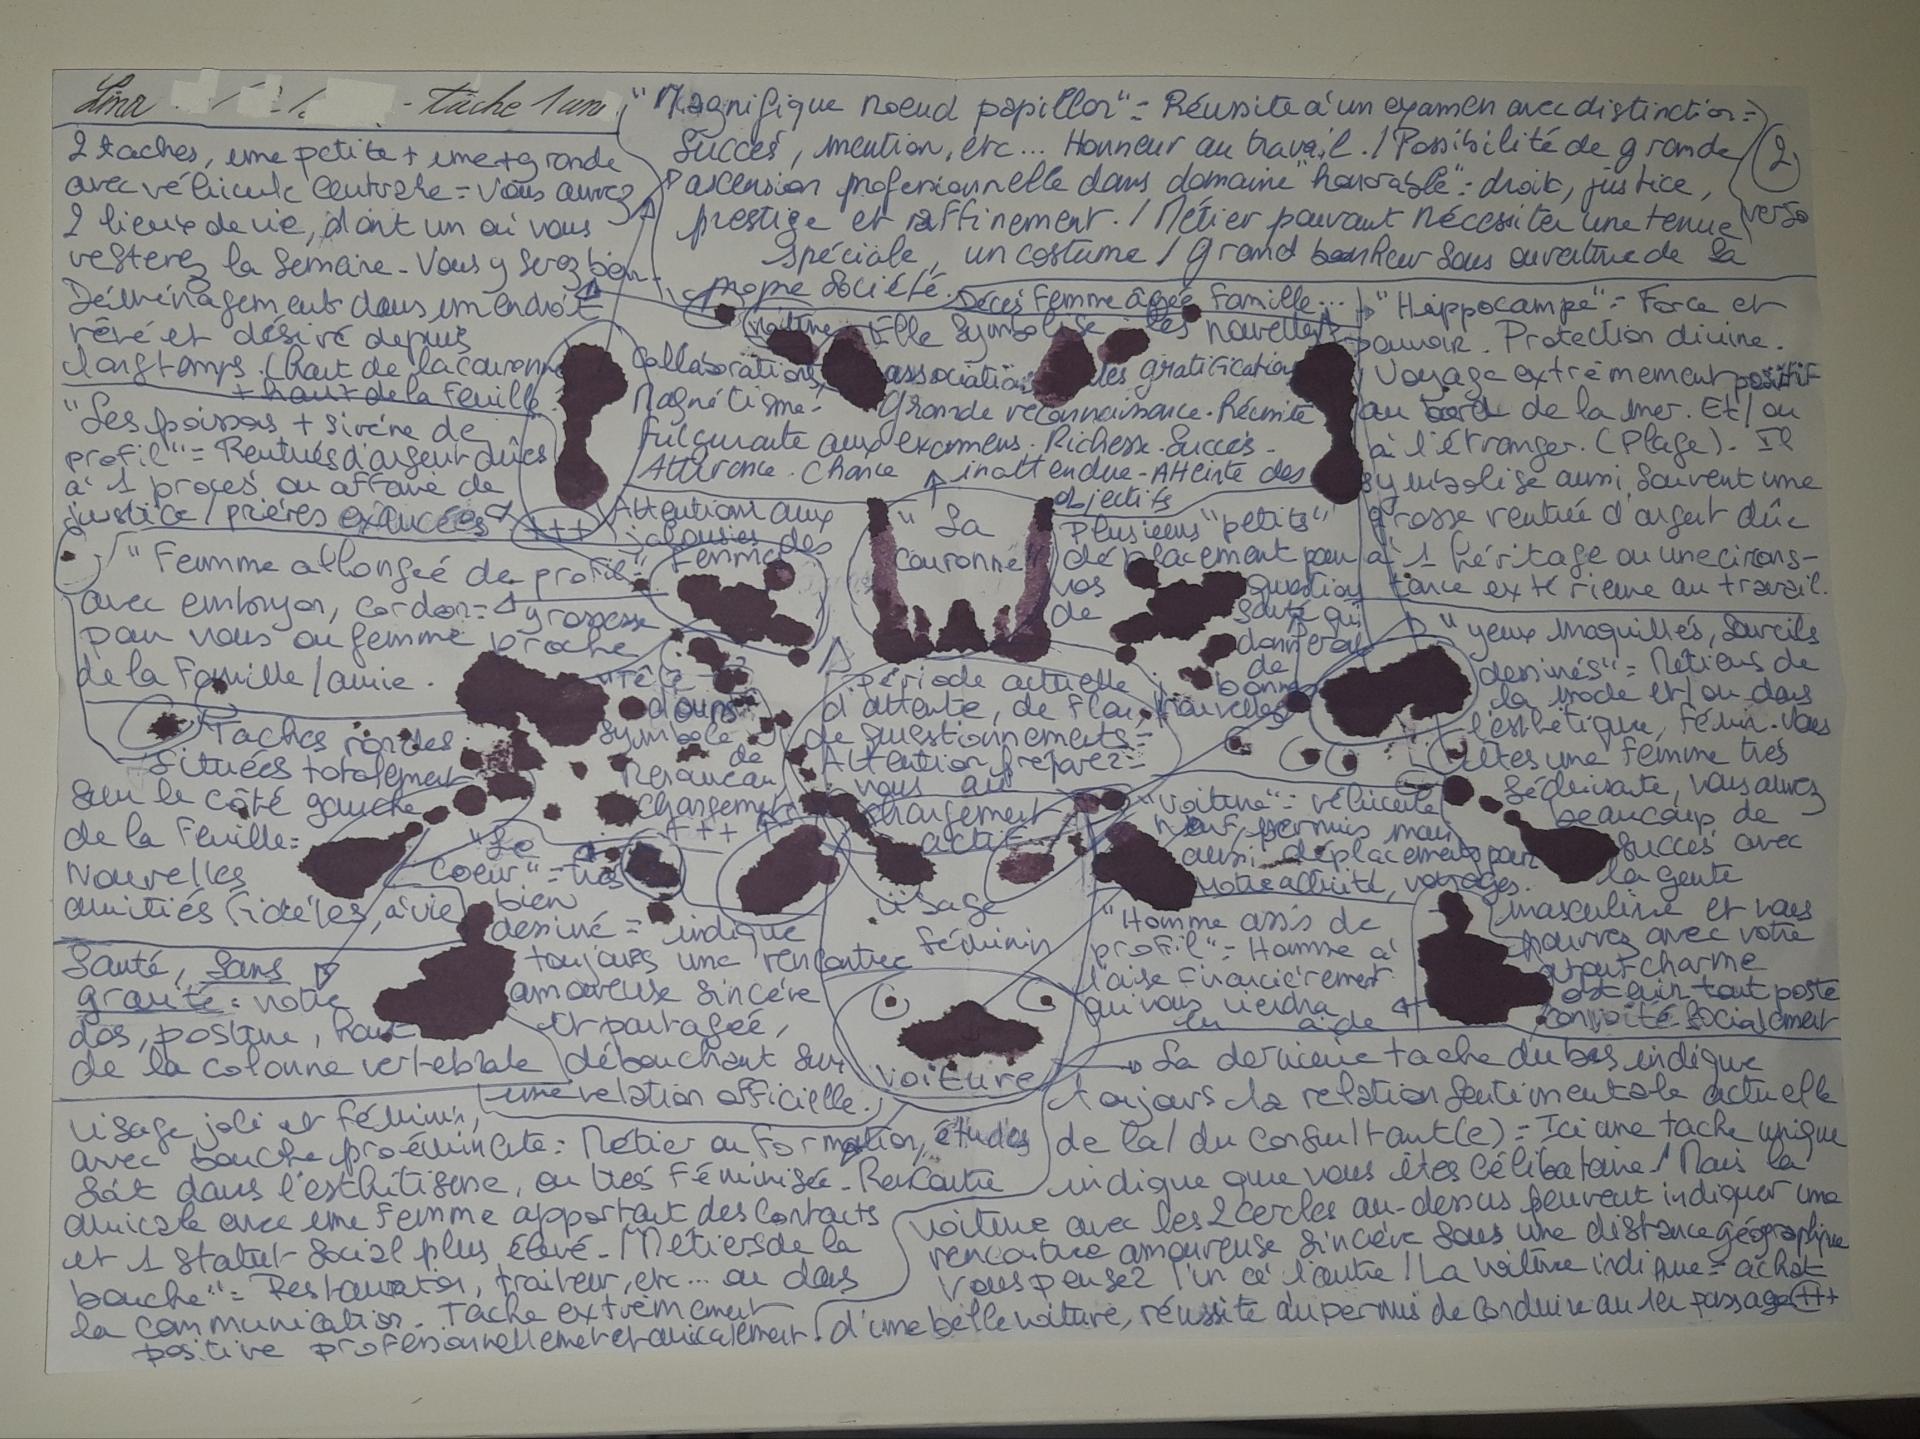 Lina
- tâche 1 uni
"Magnifique noeud papillon" = Réussite à un examen avec distinction =
Succès, mention, etc... Honneur au travail. / Possibilité de grande
ascension professionnelle dans domaine "honorable" : droit, justice,
prestige et raffinement. / Métier pouvant nécessiter une tenue
spéciale, un costume / grand bonheur sous ouverture de la
propre société.
2
verso
2 taches, une petite + une + grande
avec véhicule centrale = Vous aurez
2 lieux de vie, dont un où vous
resterez la semaine - Vous y serez bien -
Déménagement dans un endroit
rêvé et désiré depuis
longtemps. (haut de la couronne
+ haut de la feuille.
"Les poissons + sirène de
profil" = Rentrées d'argent dûes
à 1 procès ou affaire de
justice / prières exaucées
+++
Décès femme âgée famille...
voiture
Elle symbolise les nouvelles
collaborations, associations les gratifications
Magnétisme - Grande reconnaissance. Réussite
fulgurante aux examens. Richesse. Succès -
Attirance. Chance inattendue - Atteinte des
objectifs
"Hippocampe" = Force et
pouvoir. Protection divine.
Voyage extrêmement positif
au bord de la mer. Et / ou
à l'étranger. (Plage). Il
symbolise aussi souvent une
grosse rentrée d'argent dûe
à 1 héritage ou une circons-
tance extérieure au travail.
Attentions aux
jalousies des
femmes
"La
couronne"
Plusieurs "petits"
déplacement pour
vos question
de santé qui
donneront
de
bonnes
nouvelles
"Femme allongée de profil"
avec embryon, cordon = grossesse
pour vous ou femme proche
de la famille / amie.
"Tête
de loup"
symbole
de
renouveau
changement
+++
période actuelle
d'attente, de flou,
de questionnements -
Attention préparez-
vous au
changement
actif
"yeux maquillés, sourcils
dessinés" = Métiers de
la mode et / ou dans
l'esthétique, fémin. Vous
êtes une femme très
séduisante, vous aurez
beaucoup de
succès avec
la gente
masculine et vous
pourrez avec votre
atout charme
obtenir tout poste
convoité socialement
Taches rondes
situées totalement
sur le côté gauche
de la feuille =
Nouvelles
amitiés fidèles, à vie
"Le
coeur" = très
bien
dessiné = indique
toujours une rencontre
amoureuse sincère
et partagée,
débouchant sur
une relation officielle.
"Voiture" = véhicule
neuf, permis mais
aussi déplacements par
votre activité, voyages.
Visage
féminin
"Homme assis de
profil" = Homme à
l'aise financièrement
qui vous viendra
en aide
Santé, sans
gravité = votre
dos, posture, haut
de la colonne vertébrale
voiture
La dernière tache du bas indique
toujours la relation sentimentale actuelle
de la / du consultant(e) = Ici une tache unique
indique que vous êtes célibataire / Mais la
voiture avec les 2 cercles au-dessus peuvent indiquer une
rencontre amoureuse sincère sous une distance géographique
Vous pensez l'un à l'autre / La voiture indique = achat
d'une belle voiture, réussite au permis de conduire au 1er passage +++
Visage joli et féminin,
avec bouche proéminente : Métier ou formation, études
soit dans l'esthétisme, ou très féminisée - Rencontre
amicale avec une femme apportant des contacts
et 1 statut social plus élevé - Métiers de la
bouche" = Restauration, traiteur, etc... ou dans
la communication. Tache extrêmement
positive professionnellement et amicalement.